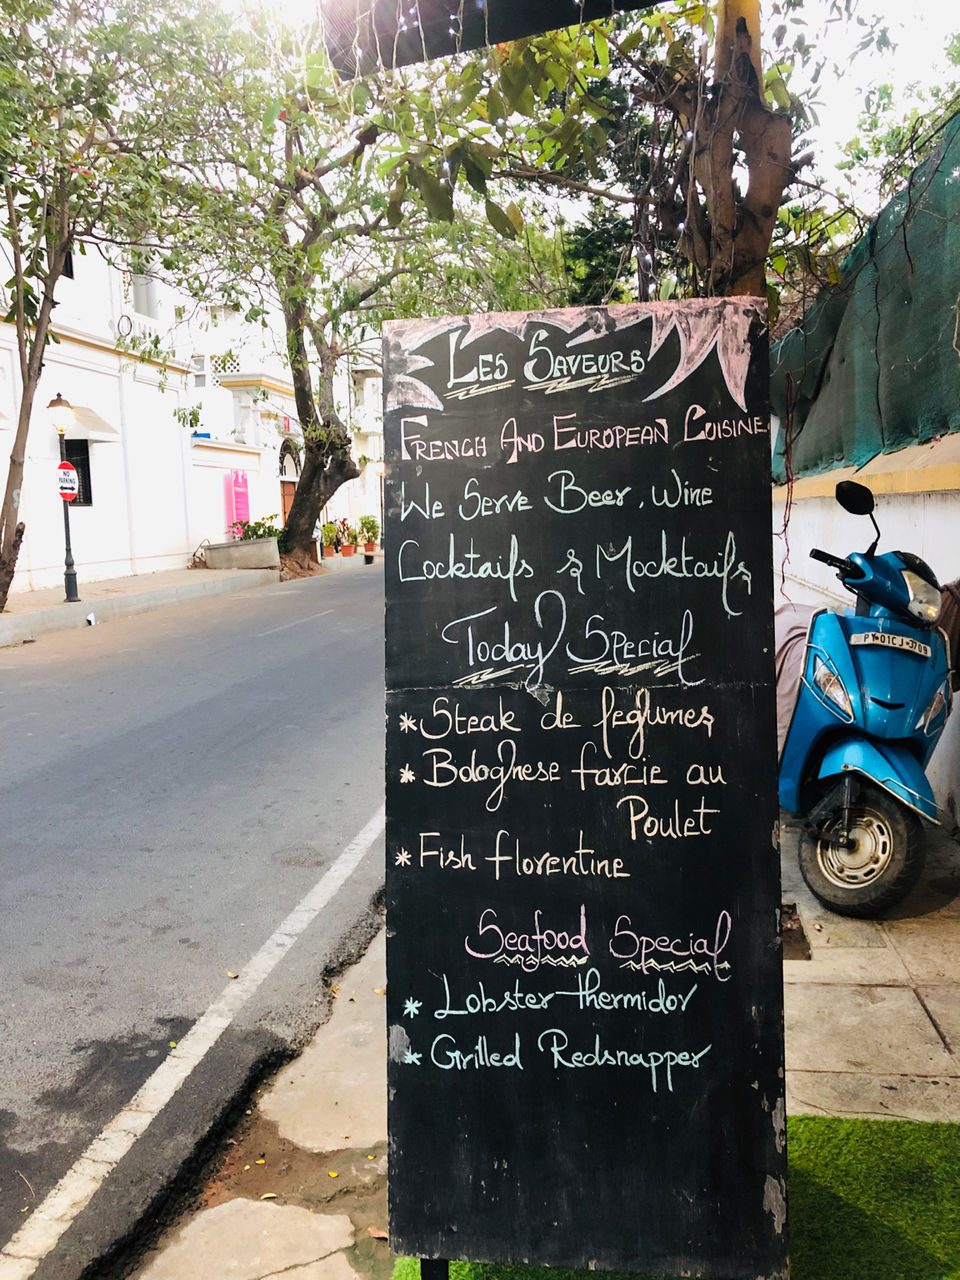 Les Saveurs
French And European Cuisine.
We Serve Beer, Wine
Cocktails & Mocktails
Today Special
* Steak de leglumes
* Bologhese farcie au
Poulet
* Fish florentine
Seafood Special
* Lobster thermidor
* Grilled Redsnapper
NO
PARKING
PY 01CJ 3709